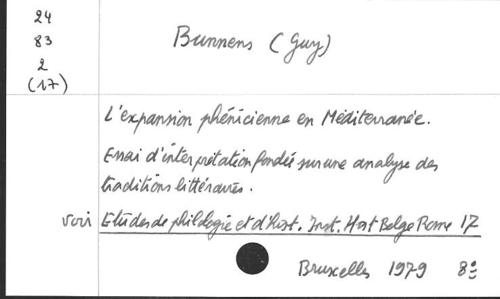 24
83
2
(17)
Bunnens (Guy)
L'expansion phénicienne en Méditerranée.
Essai d'interprétation fondée sur une analyse des
traditions littéraires.
voir Etudes de philologie et d'Hist. Inst. Hist Belge Rome 17
Bruxelles 1979 8°